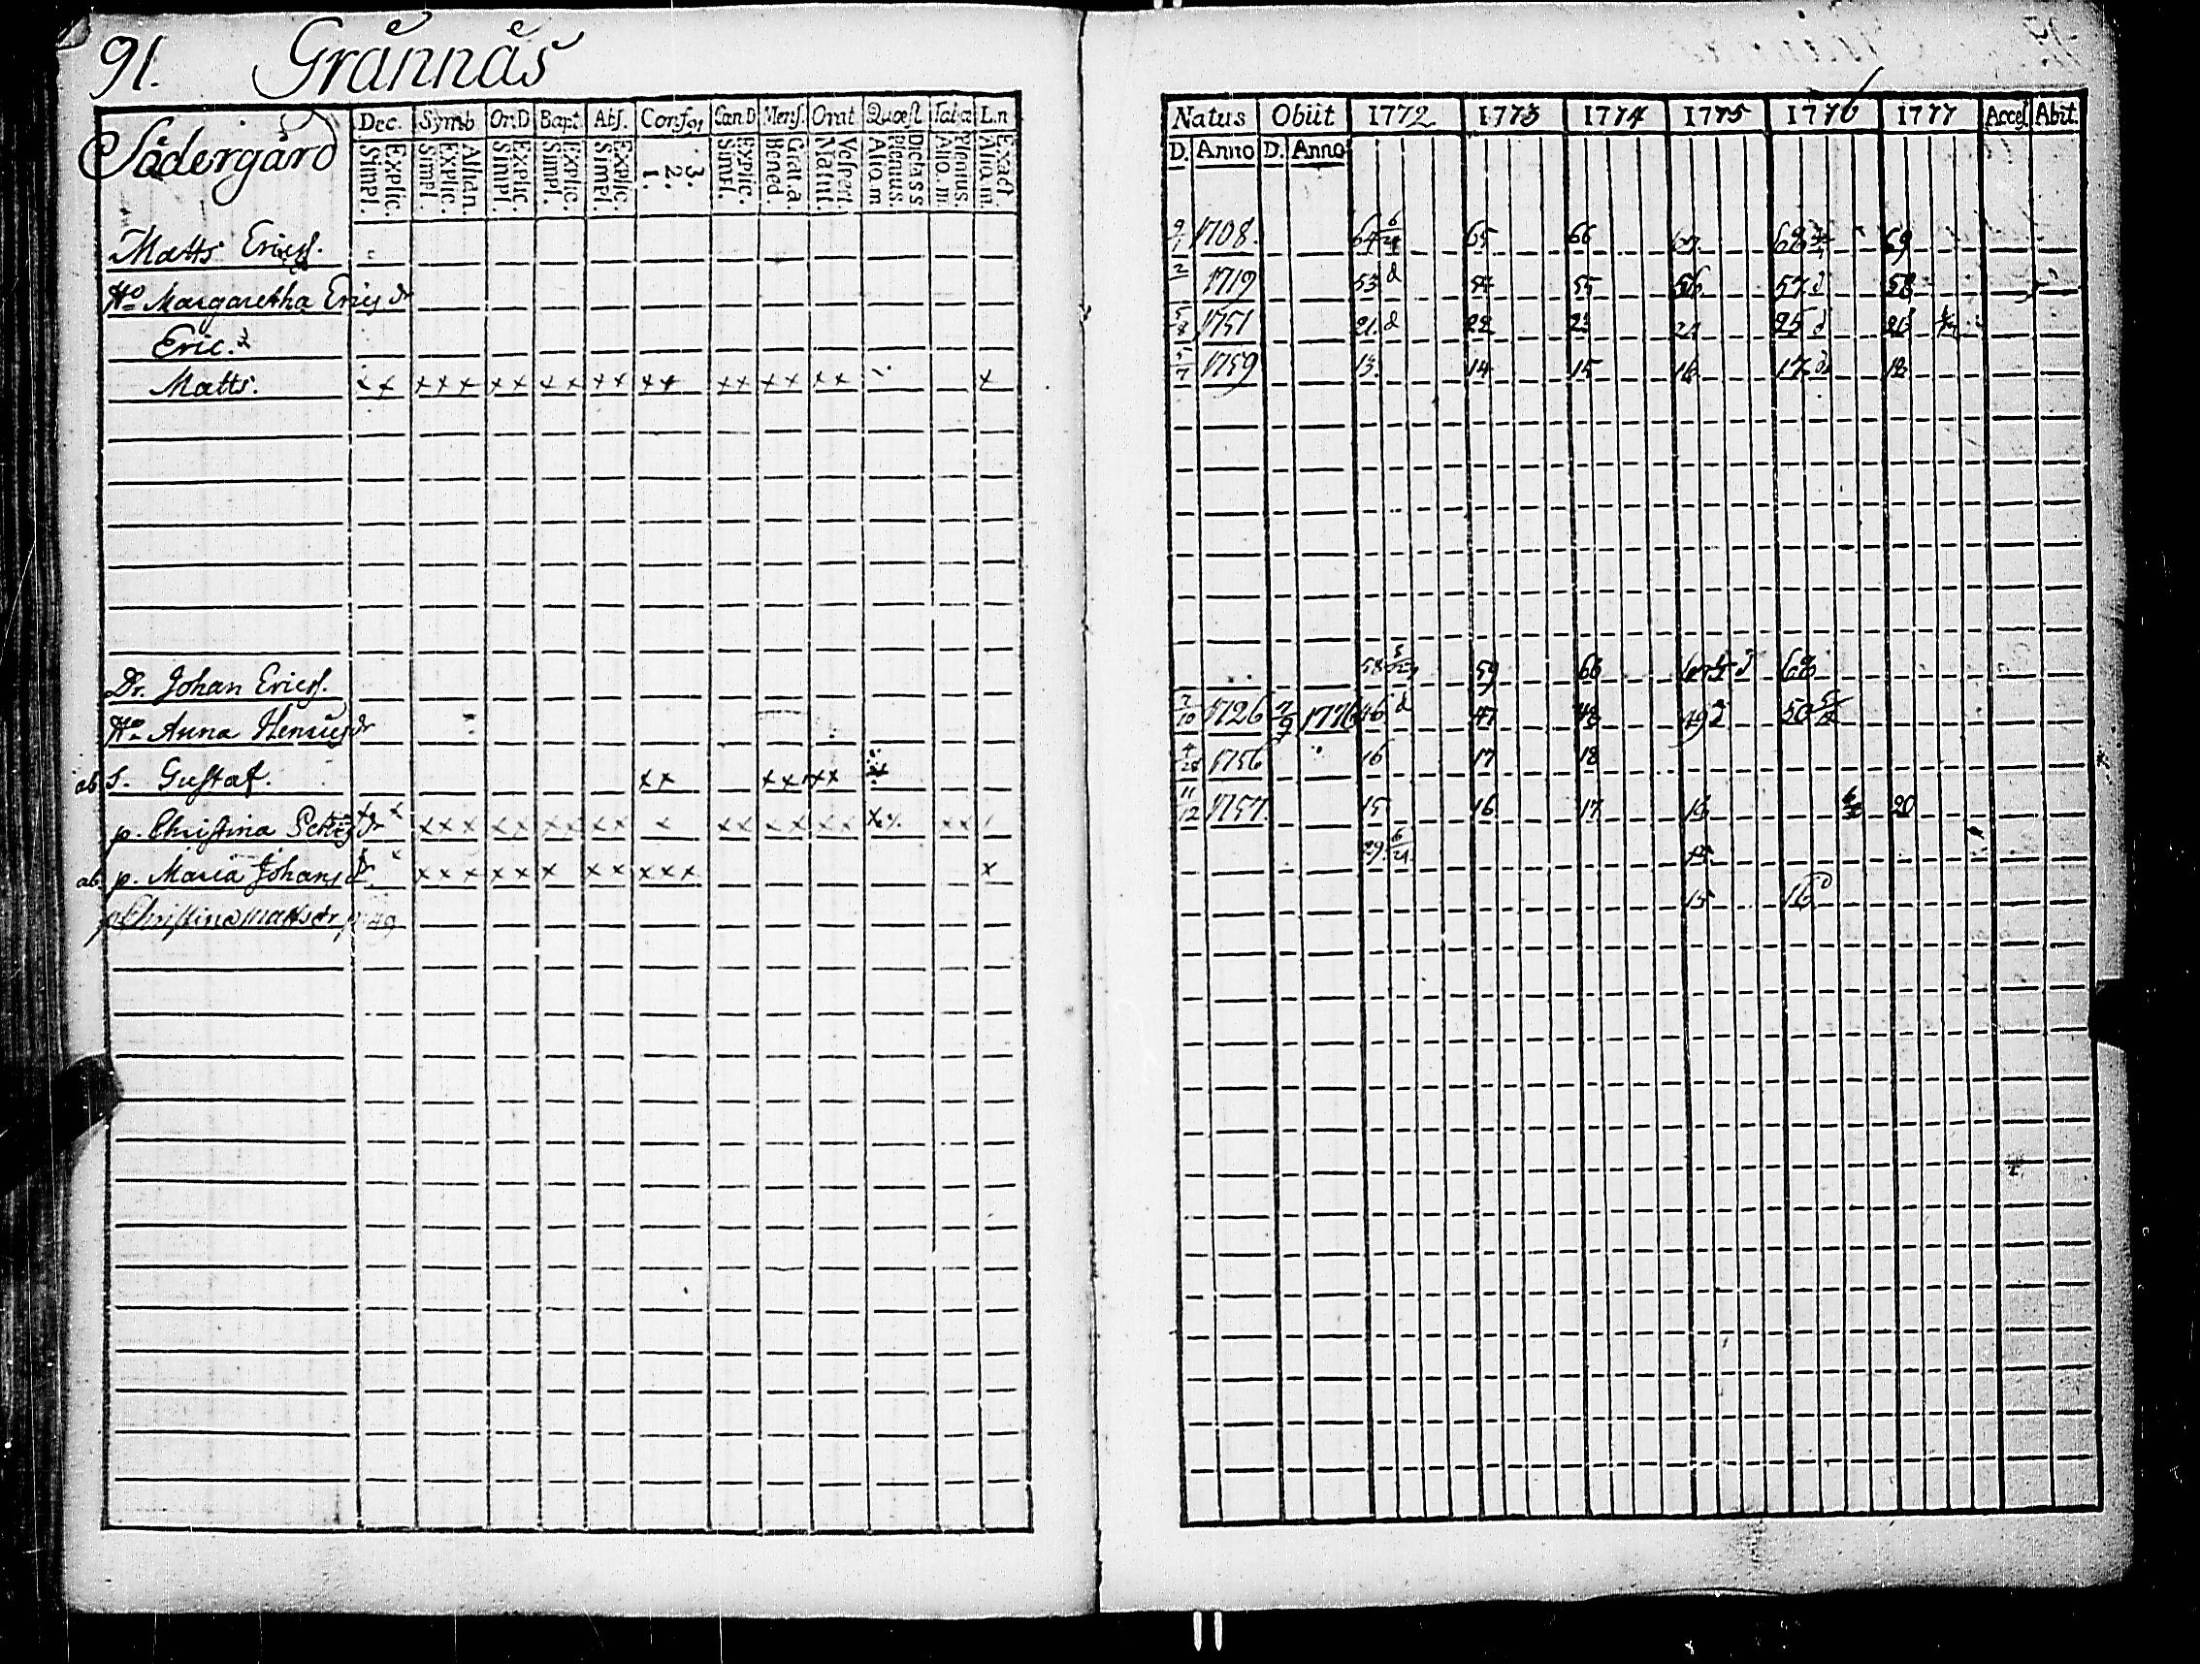 91. Grännäs
Södergård
Dec. Symb Or.D Bapt Abs. Confes Can.D Mens. Orat Quæst Tab.æ L.n
Simpl. Explic. Simpl. Explic. Athan. Simpl. Explic. Simpl. Explic. Simpl. Explic. 1. 2. 3. Simpl. Explic. Bened. Grat.a. Matut. Vespert. Aliq.m Plenius. Dictass Aliq.m Plenius. Aliq.m Exact
Matts Ericss.
Ho Margaretha Ericsdr
Eric.
Matts. x x x x x x x x x x x x x x x x x x x x
Dr. Johan Ericss.
Ho Anna Henricsdr
ab S. Gustaf. x x x x x x
p. Christina dr x x x x x x x x x x x x x x x x x x x
ab p. Maria Johansdr x x x x x x x x x x x x x
p Christina Mattsdr 49
Natus Obiit 1772 1773 1774 1775 1776 1777 Acces Abit.
D. Anno D. Anno
9/1 1708. 64 65 66 67 68 69
2 1719 53 d 54 55 56 57 d 58
5/8 1751 21 d 22 23 24 25 d 26
5/7 1759 13 14 15 16 17 d 18
58 59 60 68
7/10 1726 1776 46 d 47 48 49 50
4/28 1756 16 17 18
11/12 1757. 15 16 17 18 20
29 6/21
15 16